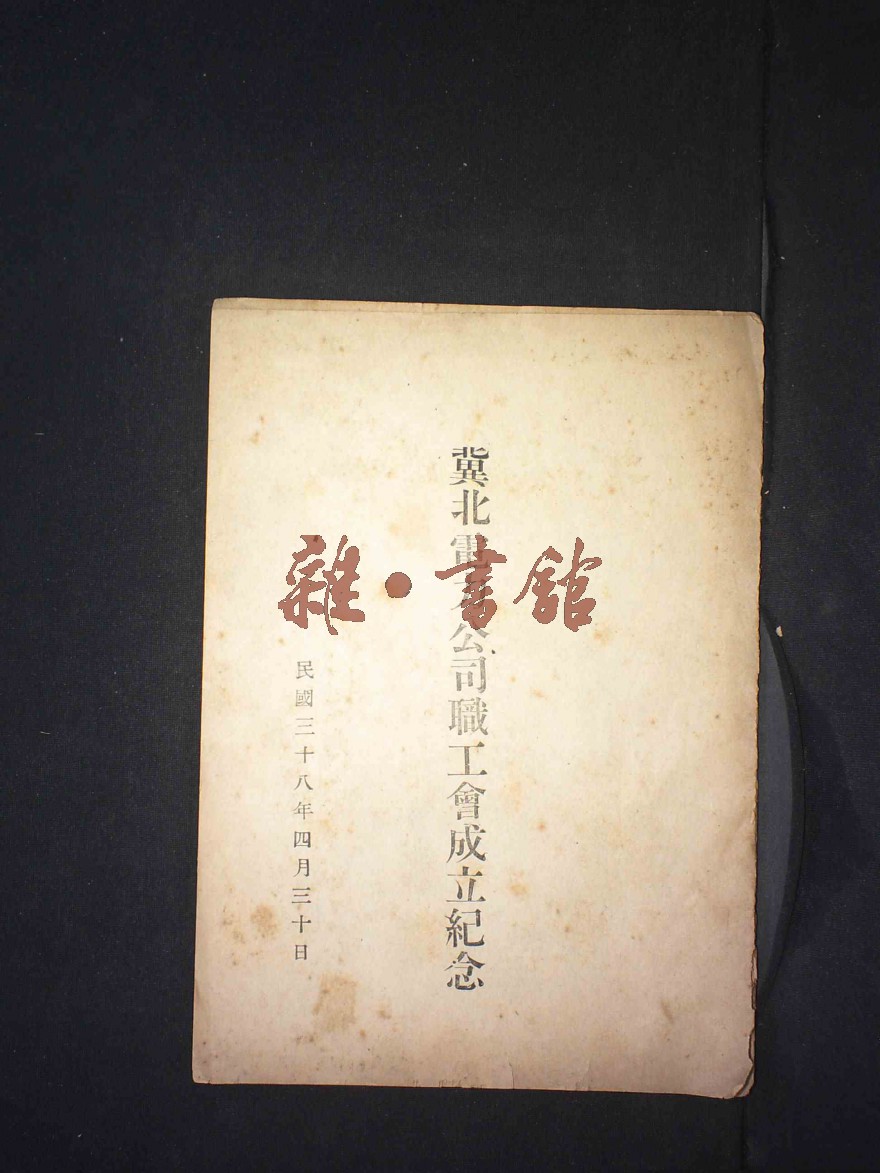 冀北電力公司職工會成立紀念
民國三十八年四月三十日
雜·書館